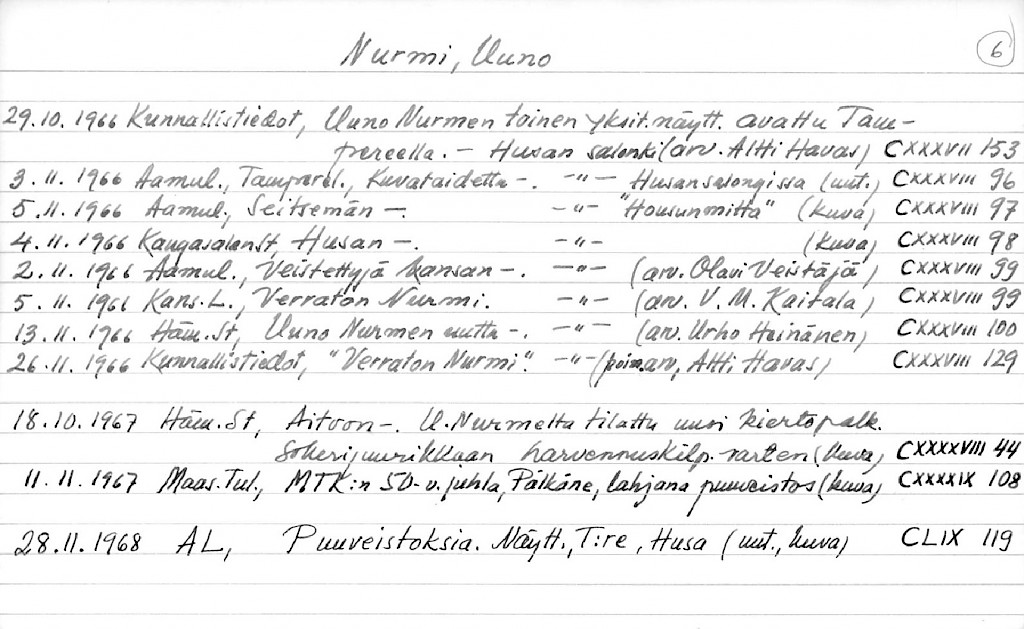 Nurmi, Uuno
6
29.10.1966 Kunnallistiedot, Uuno Nurmen toinen yksit.näytt. avattu Tam-
pereella. - Husan salonki (arv. Altti Havas) CXXXVII 153
3.11.1966 Aamul., Tamperel., Kuvataidetta -. -"- Husan salongissa (uut.) CXXXVIII 96
5.11.1966 Aamul., Seitsemän -. -"- "Housunmitta" (kuva) CXXXVIII 97
4.11.1966 Kangasalan St, Husan -. -"- (kuva) CXXXVIII 98
2.11.1966 Aamul., Veistettyjä kansan -. -"- (arv. Olavi Veistäjä) CXXXVIII 99
5.11.1966 Kans.L., Verraton Nurmi. -"- (arv. V. M. Kaitala) CXXXVIII 99
13.11.1966 Häm.St, Uuno Nurmen uutta -. -"- (arv. Urho Heinänen) CXXXVIII 100
26.11.1966 Kunnallistiedot, "Verraton Nurmi". -"- (poim.arv, Altti Havas) CXXXVIII 129
18.10.1967 Häm.St, Aitoon -. U.Nurmelta tilattu uusi kiertopalk.
Sokerijuurikkaan harvennuskilp. varten (kuva) CXXXXVIII 44
11.11.1967 Maas.Tul., MTK:n 50-v.juhla, Pälkäne, lahjana puuveistos (kuva) CXXXXIX 108
28.11.1968 AL, Puuveistoksia. Näytt., T:re, Husa (uut., kuva) CLIX 119